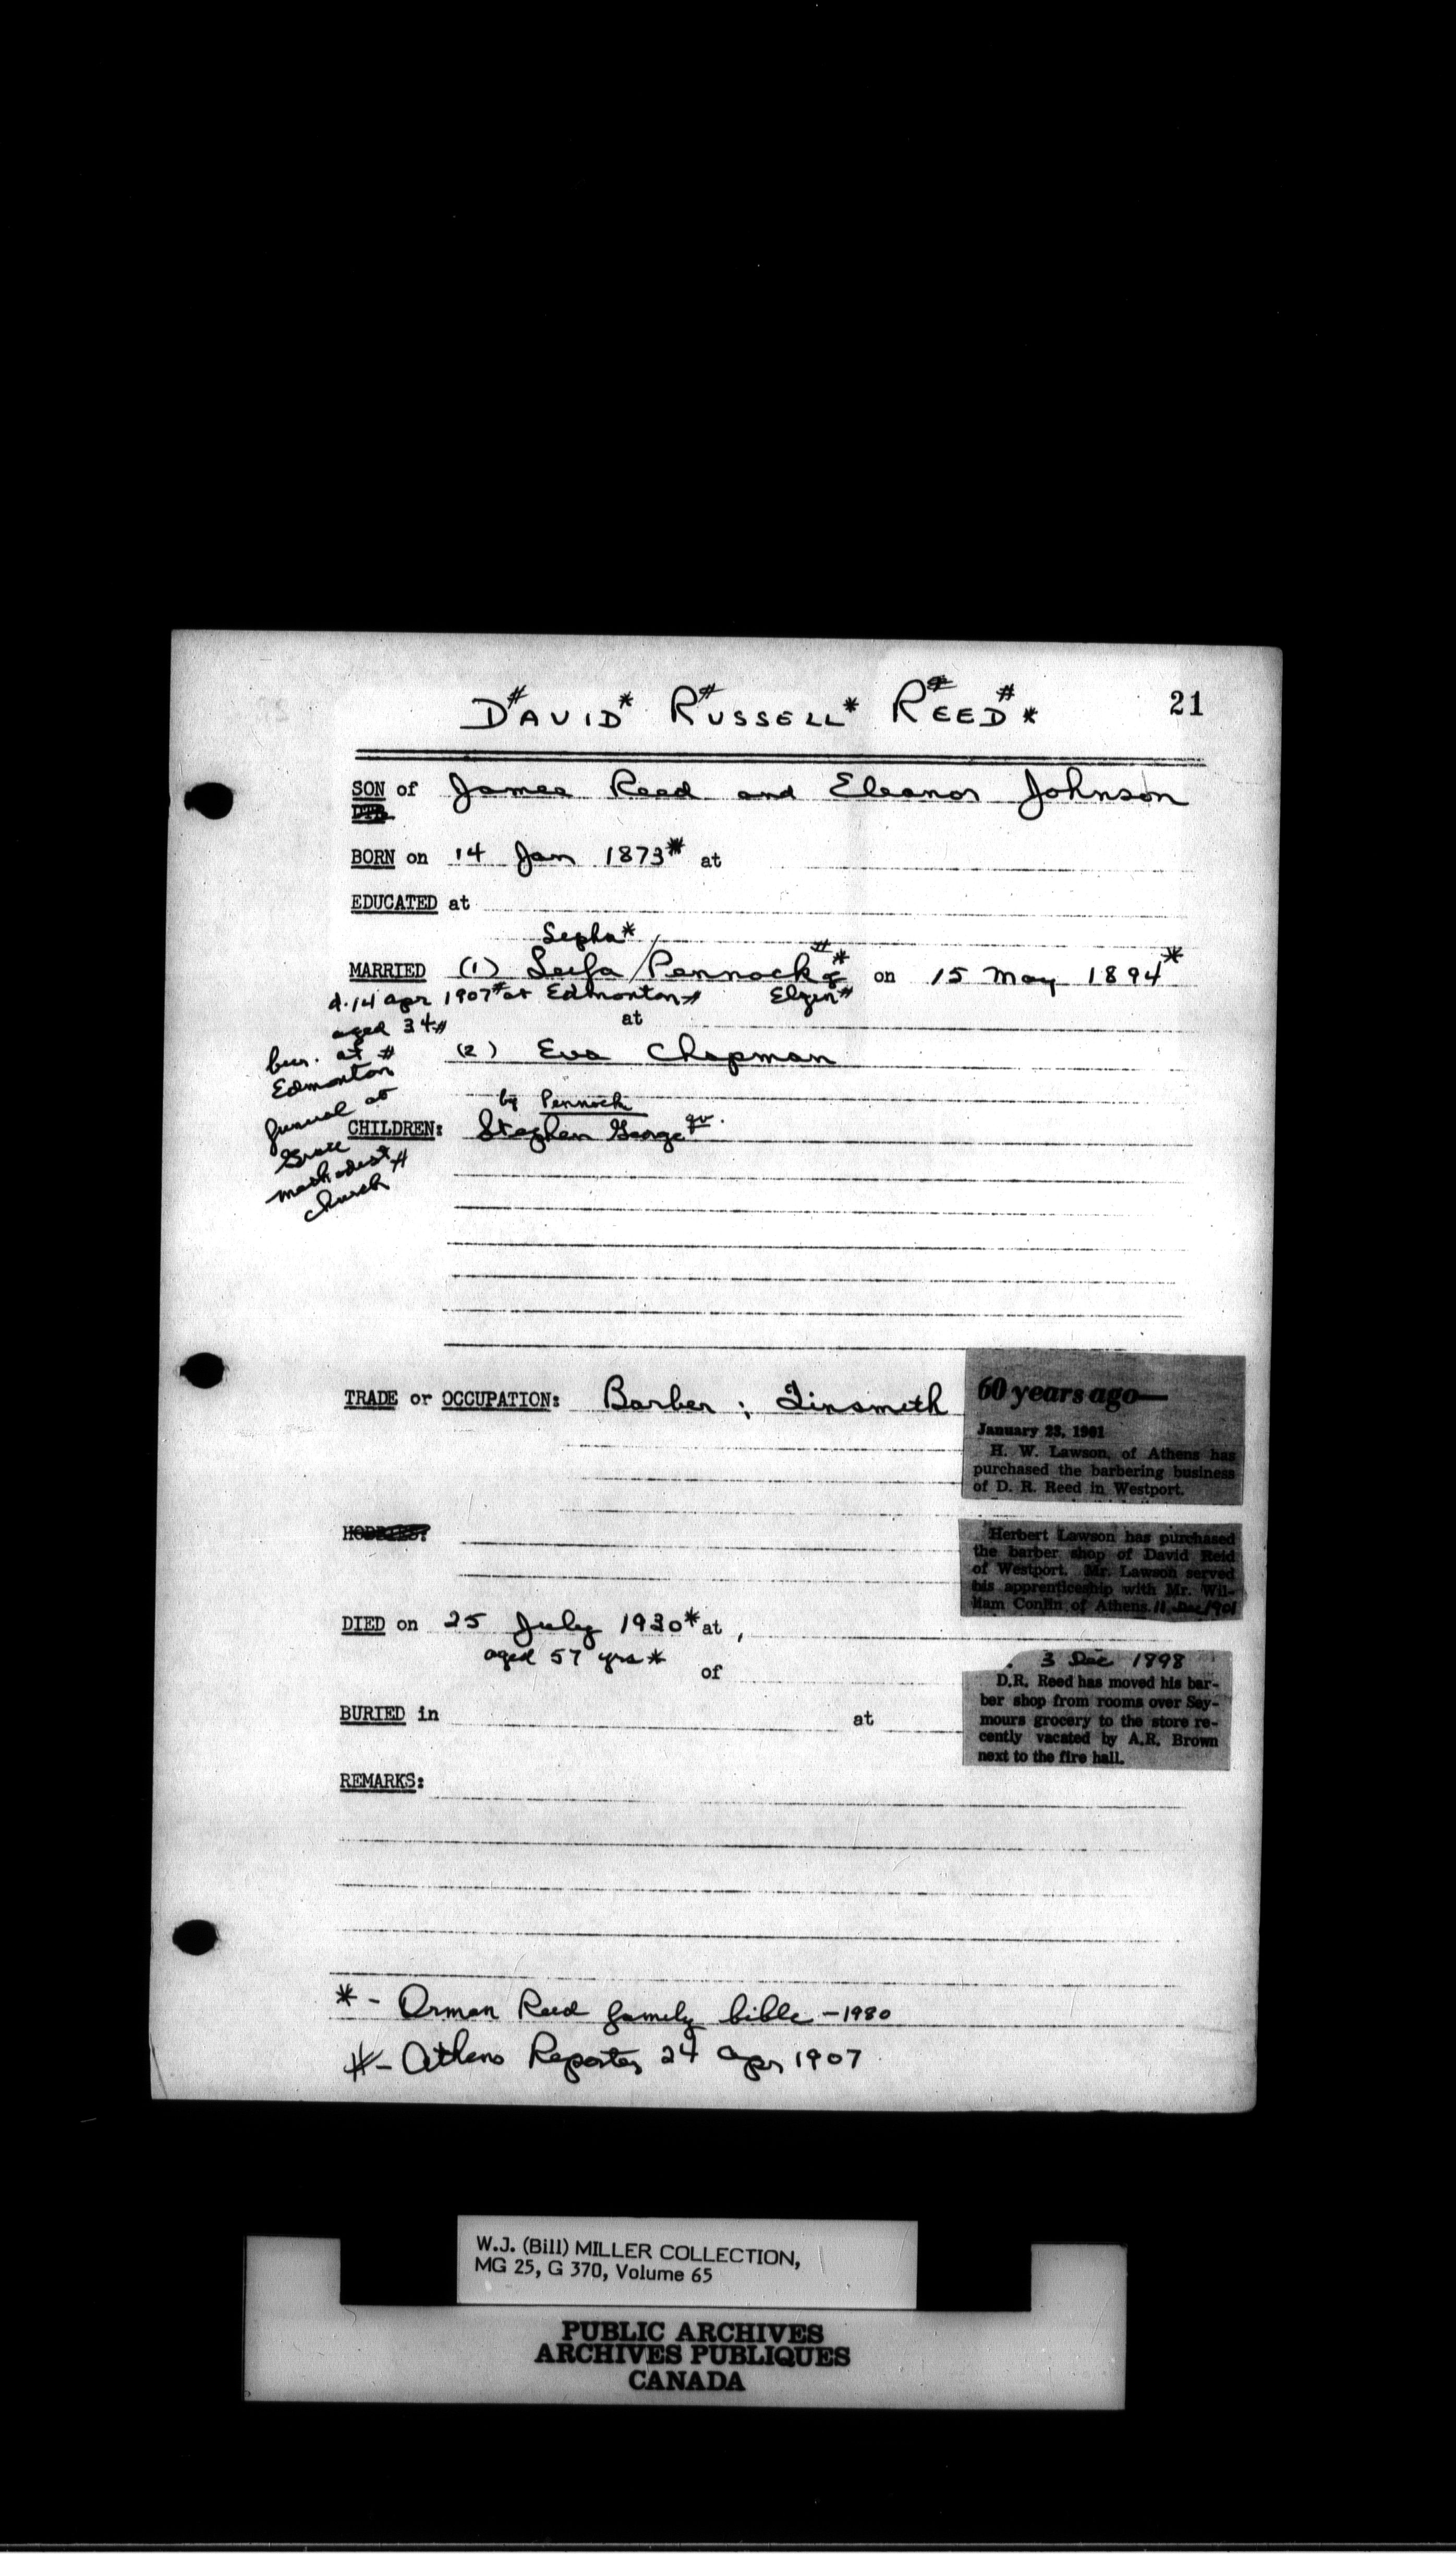 21
DAVID#* RUSSELL#* REED#*
SON of James Reed and Eleanor Johnson
DTR.
BORN on 14 Jan 1873* at
EDUCATED at
Sepha*
MARRIED (1) Seefa/Pennock#* of on 15 May 1894*
d. 14 apr 1907# at Edmonton# Elgin#
aged 34#
at
(2) Eva Chapman
bur. at #
Edmonton
funeral at
Grace
methodist#
church
by Pennock
CHILDREN: Stephen George qv.
TRADE or OCCUPATION: Barber ; Tinsmith
60 years ago—
January 23, 1901
H. W. Lawson, of Athens has
purchased the barbering business
of D. R. Reed in Westport.
HOBBIES:
Herbert Lawson has purchased
the barber shop of David Reid
of Westport. Mr. Lawson served
his apprenticeship with Mr. Wil-
liam Conlin of Athens. 11 Dec 1901
DIED on 25 July 1930* at,
aged 57 yrs*
of
3 Dec 1898
D.R. Reed has moved his bar-
ber shop from rooms over Sey-
mours grocery to the store re-
cently vacated by A.R. Brown
next to the fire hall.
BURIED in at
REMARKS:
* - Orman Reed family bible - 1980
# - Athens Reporter 24 apr 1907
W.J. (Bill) MILLER COLLECTION,
MG 25, G 370, Volume 65
PUBLIC ARCHIVES
ARCHIVES PUBLIQUES
CANADA